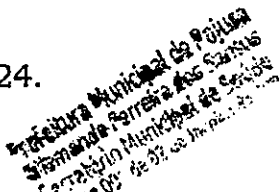 24.
Prefeitura Municipal de Pojuca
Sismanda Ferreira dos Santos
Secretário Municipal de Saúde
de 02 de